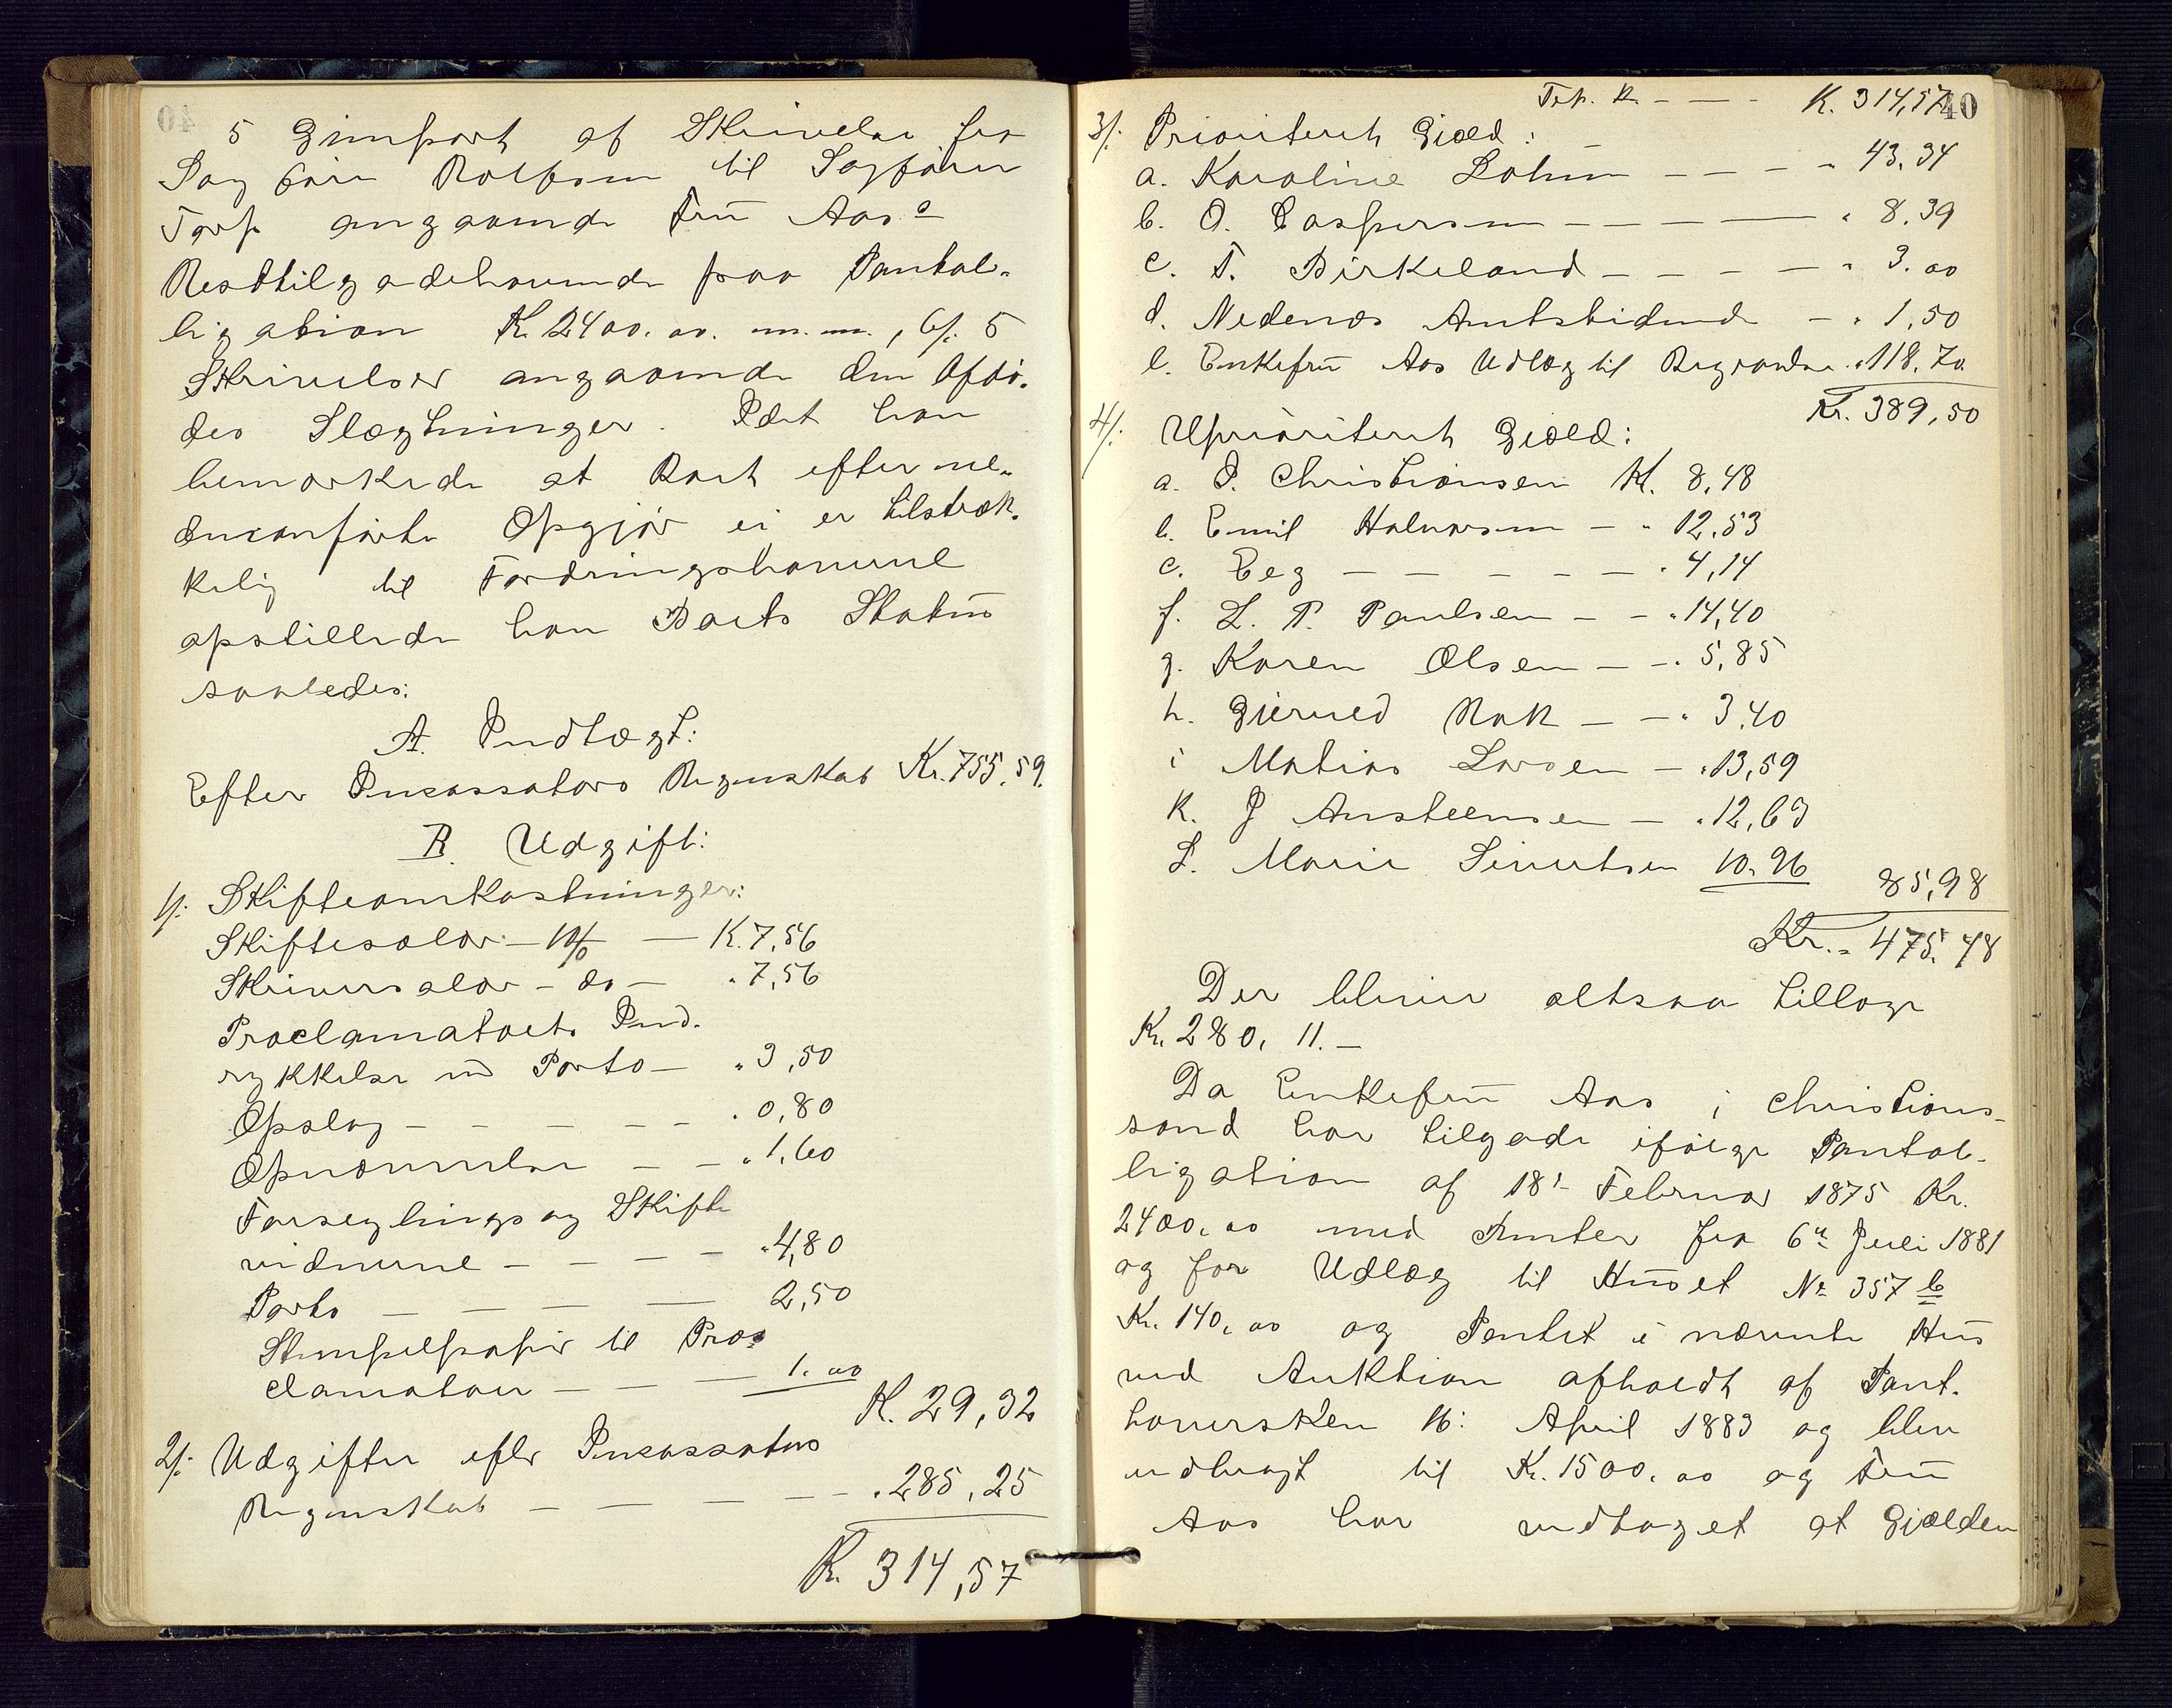 5 Gjenpart af Skrivelse fra
Sagfører Rolfsen til Sagfører
Torp angaaende Fru Aas's
Resttilgodehavende paa Pantob-
ligation K. 2400.00. m.m., 6/: 5
Skrivelser angaaende den Afdø-
des Slægtninger. Idet han
bemærkede at Boet efter ne-
denanførte Opgjør ei er tilstræk-
kelig til Fordringshaverne
opstillede han Boets Status
saaledes:
A. Indtægt:
Efter Incassators Regnskab Kr. 755,59.
B. Udgift:
1/: Skifteomkostninger:
Skiftesalær - 10/0 — K. 7,56
Skriversalær - do — " 7,56
Proclamatoets Ind-
rykkelse m Porto — " 3,50
Opslag — — — — " 0,80
Opnævnelse — — " 1,60
Forseglings og Skifte
vidnerne — — — " 4,80
Porto — — — — 2,50
Stempelpapir til Pro-
clamatoer — — — 1.00
K. 29,32
2/: Udgifter efter Incassators
Regnskab — — — — " 285,25
K. 314,57
40
Trp. K. — — - K. 314,57
3/: Prioriteret Gjæld:
a. Karoline Bohm — — — " 43.34
b. O. Caspersen — — — — " 8.39
c. T. Birkeland — — — — " 3.00
d. Nedenæs Amtstidende — " 1,50
e. Enkefru Aas Udlæg til Begravelse " 118.70
Kr. 389,50
4/: Uprioriteret Gjæld:
a. I. Christiansen K. 8,48
b. Emil Halvorsen — " 12.53
c. Eeg — — — — — " 4,14
f. L. P. Paulsen — — " 14,40
g. Karen Olsen — — " 5,85
h. Gjerued Rok — — " 3.40
i Matias Larsen — " 13,59
k. J Ansteensen — " 12,63
L. Marie Sivertsen 10.96 85,98
Kr. " 475.48
Der bliver altsaa tillags
Kr. 280. 11. —
Da Enkefru Aas i Christians-
sand har tilgode ifølge Pantob-
ligation af 18' Februar 1875 Kr.
2400.00 med Renter fra 6te Juli 1881
og for Udlæg til Huset No 357 b
Kr. 140.00 og Pantet i nævnte Hus
ved Auktion afholdt af Pant-
haversken 16: April 1883 og blev
udbragt til K. 1500.00 og Fru
Aas har vedtaget at Gjælden